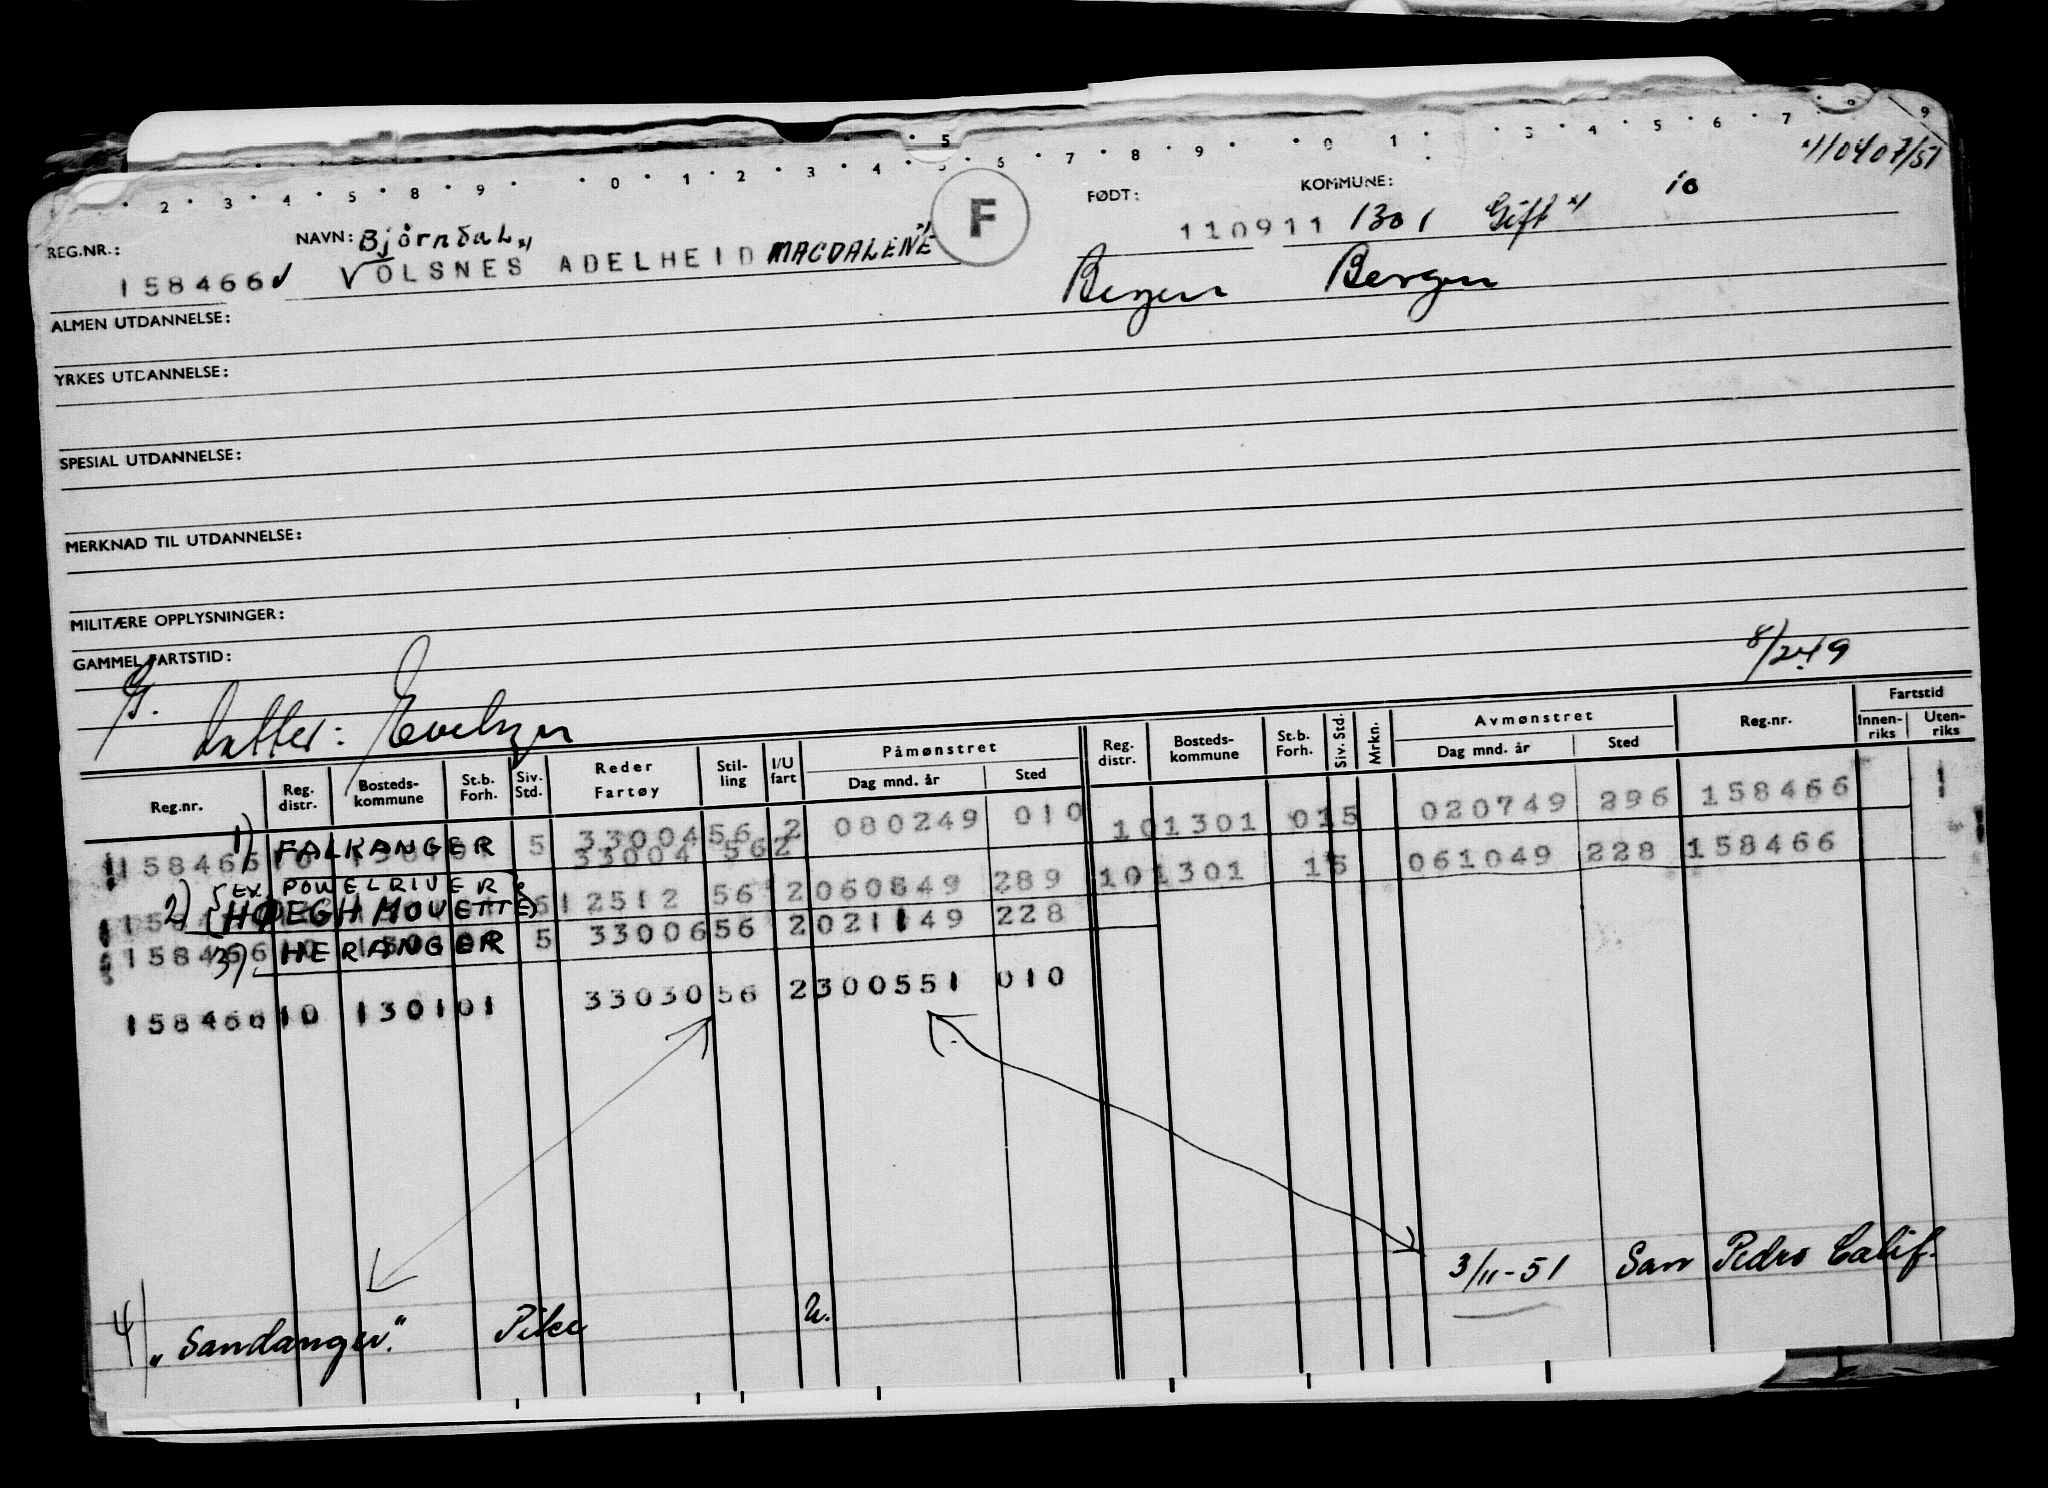 5
9
2 3 4 5 8 9 0 1 2 3 4 5 6 7 8 9 0 1 3 4 5 6 7 8
110407/51
REG.NR.: NAVN: Bjørndal x) F FØDT: KOMMUNE: 10
158466 VOLSNES ADELHEID MAGDALENE x) 110911 1301 Gift x)
Bergen Bergen
ALMEN UTDANNELSE:
YRKES UTDANNELSE:
SPESIAL UTDANNELSE:
MERKNAD TIL UTDANNELSE:
MILITÆRE OPPLYSNINGER:
GAMMEL FARTSTID: 8/2 49
G. datter: Evelyn
Reg.nr. Reg. distr. Bosteds-kommune St.b. Forh. Siv. Std. Reder Fartøy Stil-ling I/U fart Påmønstret Dag mnd. år Sted Reg. distr. Bosteds-kommune St.b. Forh. Siv. Std. Mrkn. Avmønstret Dag mnd. år Sted Reg.nr. Fartstid Innen-riks Uten-riks
1) FALKANGER 5 33004 56 2 080249 010 10 1301 01 5 020749 296 158466 1
158466 10 33004 56 2
2) {EX. POWELRIVER
HØEGH MOUETTE} 12512 56 2 060849 289 10 1301 1 5 061049 228 158466
158466 10 3) HERANGER 5 33006 56 2 021149 228
158466 10 1301 01 33030 56 2 300551 010
3/11-51 San Pedro Calif.
4) "Sandanger." Pike U.